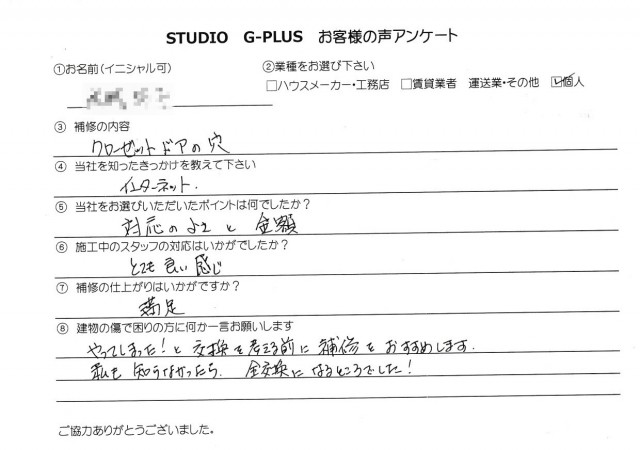 STUDIO G-PLUS お客様の声アンケート
①お名前(イニシャル可)
②業種をお選び下さい
□ハウスメーカー・工務店 □賃貸業者 運送業・その他 ☑個人
③ 補修の内容
クローゼットドアの穴
④ 当社を知ったきっかけを教えて下さい
インターネット.
⑤ 当社をお選びいただいたポイントは何でしたか?
対応のよさ と 金額
⑥ 施工中のスタッフの対応はいかがでしたか?
とても良い感じ
⑦ 補修の仕上がりはいかがですか?
満足
⑧ 建物の傷で困りの方に何か一言お願いします
やってしまった!と 交換を考える前に 補修を おすすめします.
私も 知らなかったら. 全交換に なるところでした!
ご協力ありがとうございました。